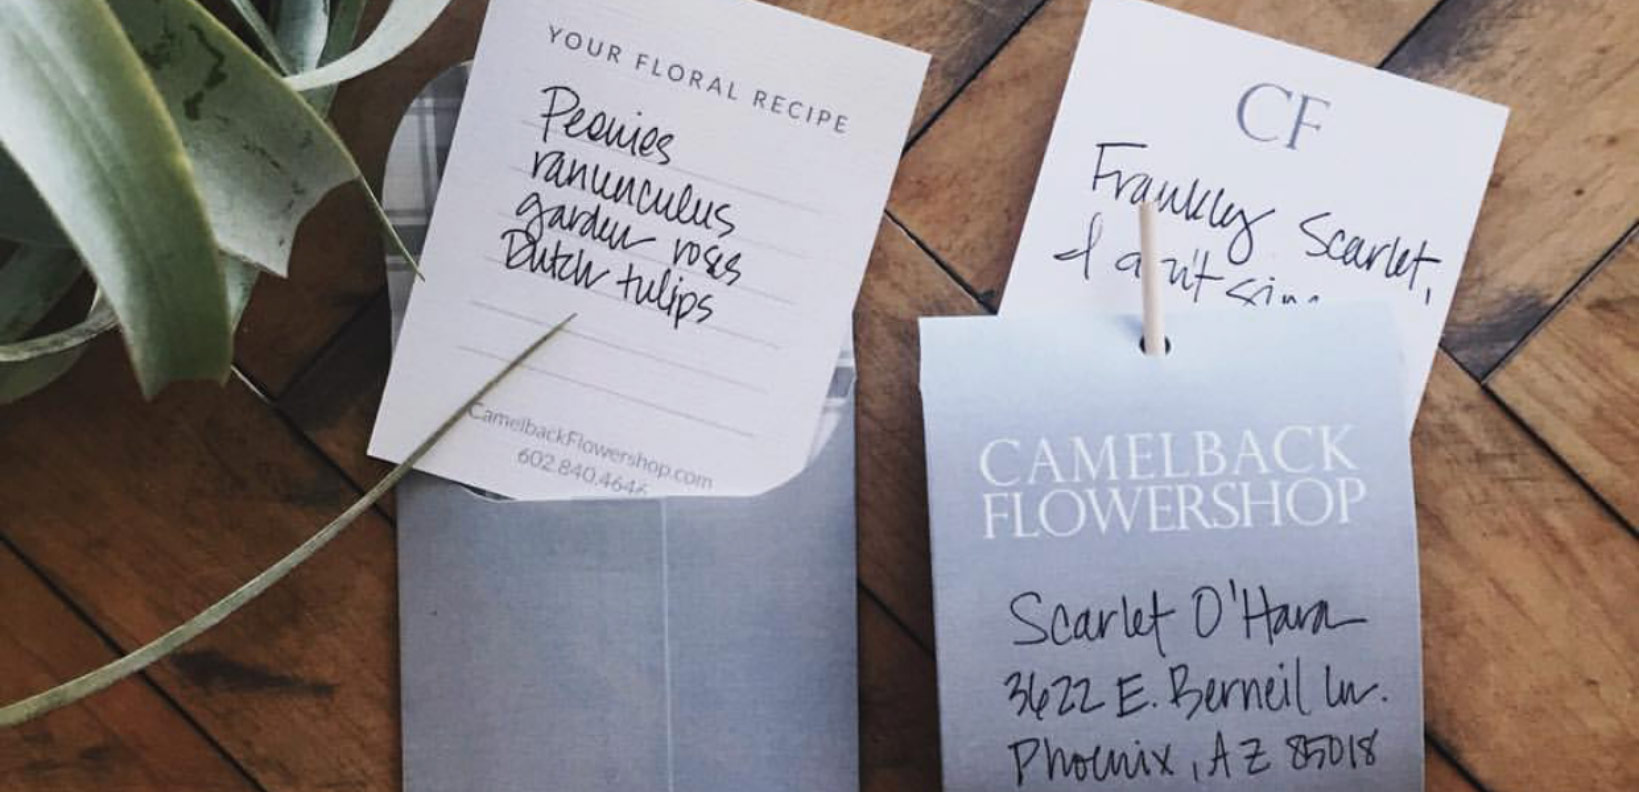 YOUR FLORAL RECIPE
Peonies
ranunculus
garden roses
Dutch tulips
CamelbackFlowershop.com
602.840.4646
CF
Frankly Scarlet,
I
CAMELBACK
FLOWERSHOP
Scarlet O'Hara
3622 E. Berneil Ln.
Phoenix, AZ 85018